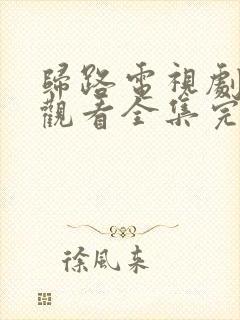 歸路電視劇
觀看全集完
徐風來